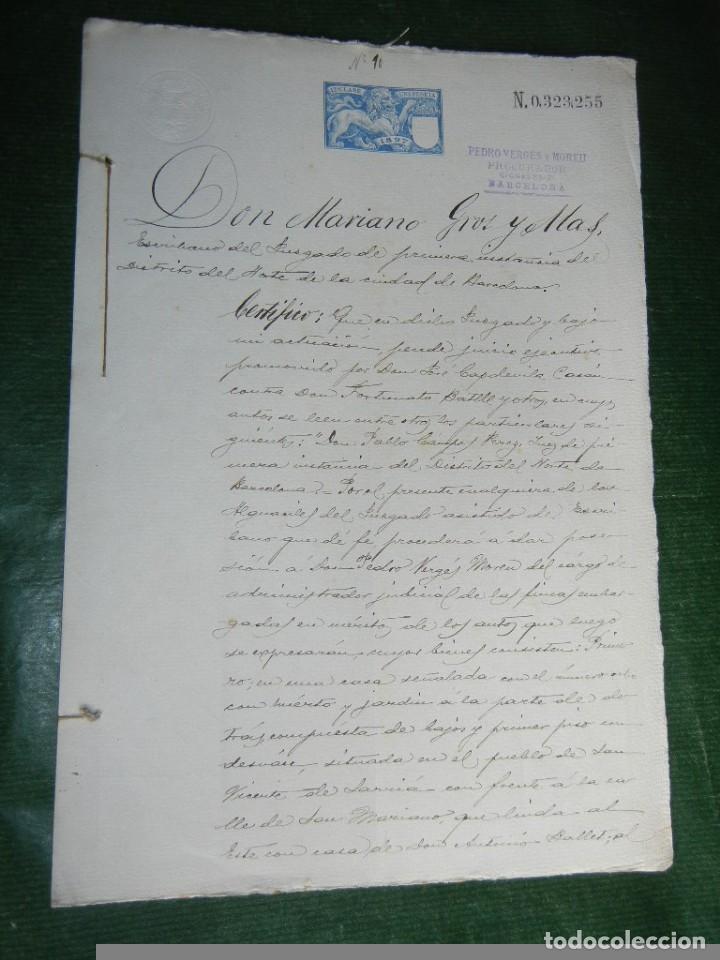 Nº 10
12ª CLASE UNA PESETA
1897
N.0.323,255
PEDRO VERGES y MOREU
PROCURADOR
BARCELONA
Don Mariano Gros y Mas,
Escribano del Juzgado de primera instancia del
Distrito del Norte de la ciudad de Barcelona.
Certifico: Que en dicho Juzgado y bajo
mi actuación, pende juicio ejecutivo
promovido por Don José Capdevila Casán
contra Don Fortunato Batlle y otros, en cuyos
autos se leen entre otros los particulares si-
guientes: "Don Pablo Campos Perez, Juez de pri-
mera instancia del Distrito del Norte de
Barcelona = Por el presente cualquiera de los
Alguaciles del Juzgado asistido de Escri-
bano que dé fé procederá á dar pose-
sión á Don Pedro Vergés Moreu del cargo de
administrador judicial de las fincas embar-
gadas en méritos de los autos que luego
se expresarán, cuyos bienes consisten: Prime-
ro; en una casa señalada con el número ocho
con huerto y jardin á la parte de de-
trás, compuesta de bajos y primer piso con
desván, situada en el pueblo de San
Vicente de Sarriá con frente á la ca-
lle de San Mariano, que linda al
Este con casa de Don Antonio Ballet; al
todocoleccion